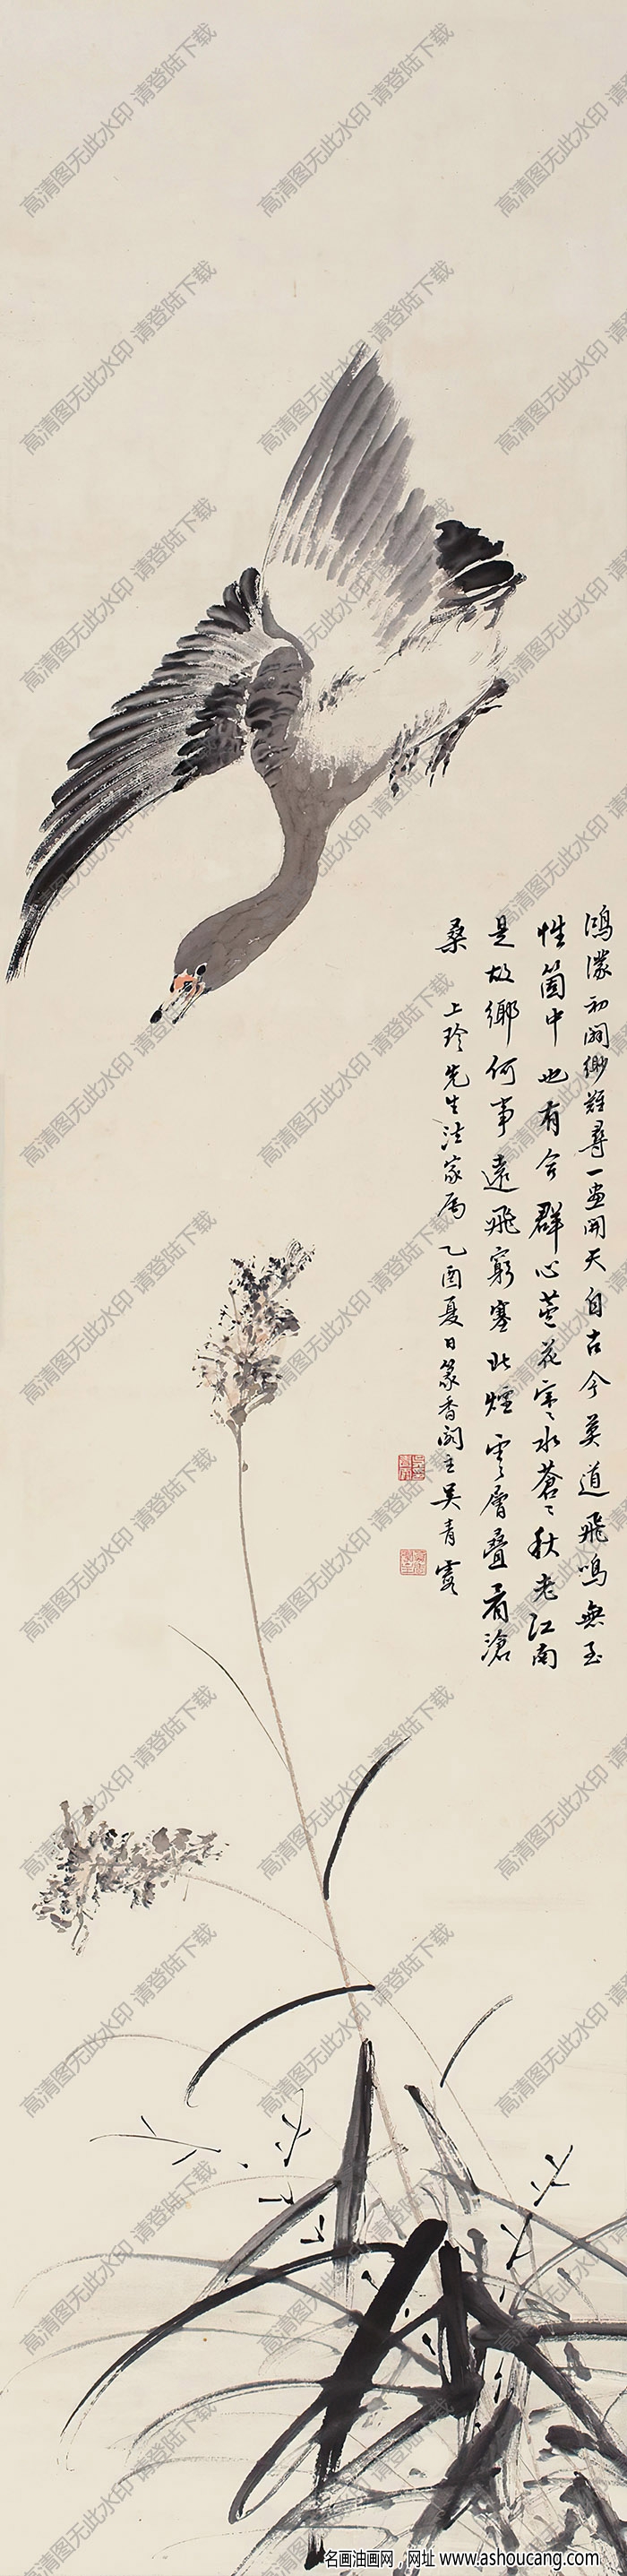 鴻濛初闢鄉難尋一畫開天自古今莫道飛鳴無至
性箇中也有合群心蘆花寒〻水蒼〻秋老江南
是故鄉何事遠飛窮塞北煙雲層疊看滄
桑 上珍先生法家屬 乙酉夏日篆香閣主吳青霞
高清图无此水印 请登陆下载
名画油画网，网址 www.ashoucang.com